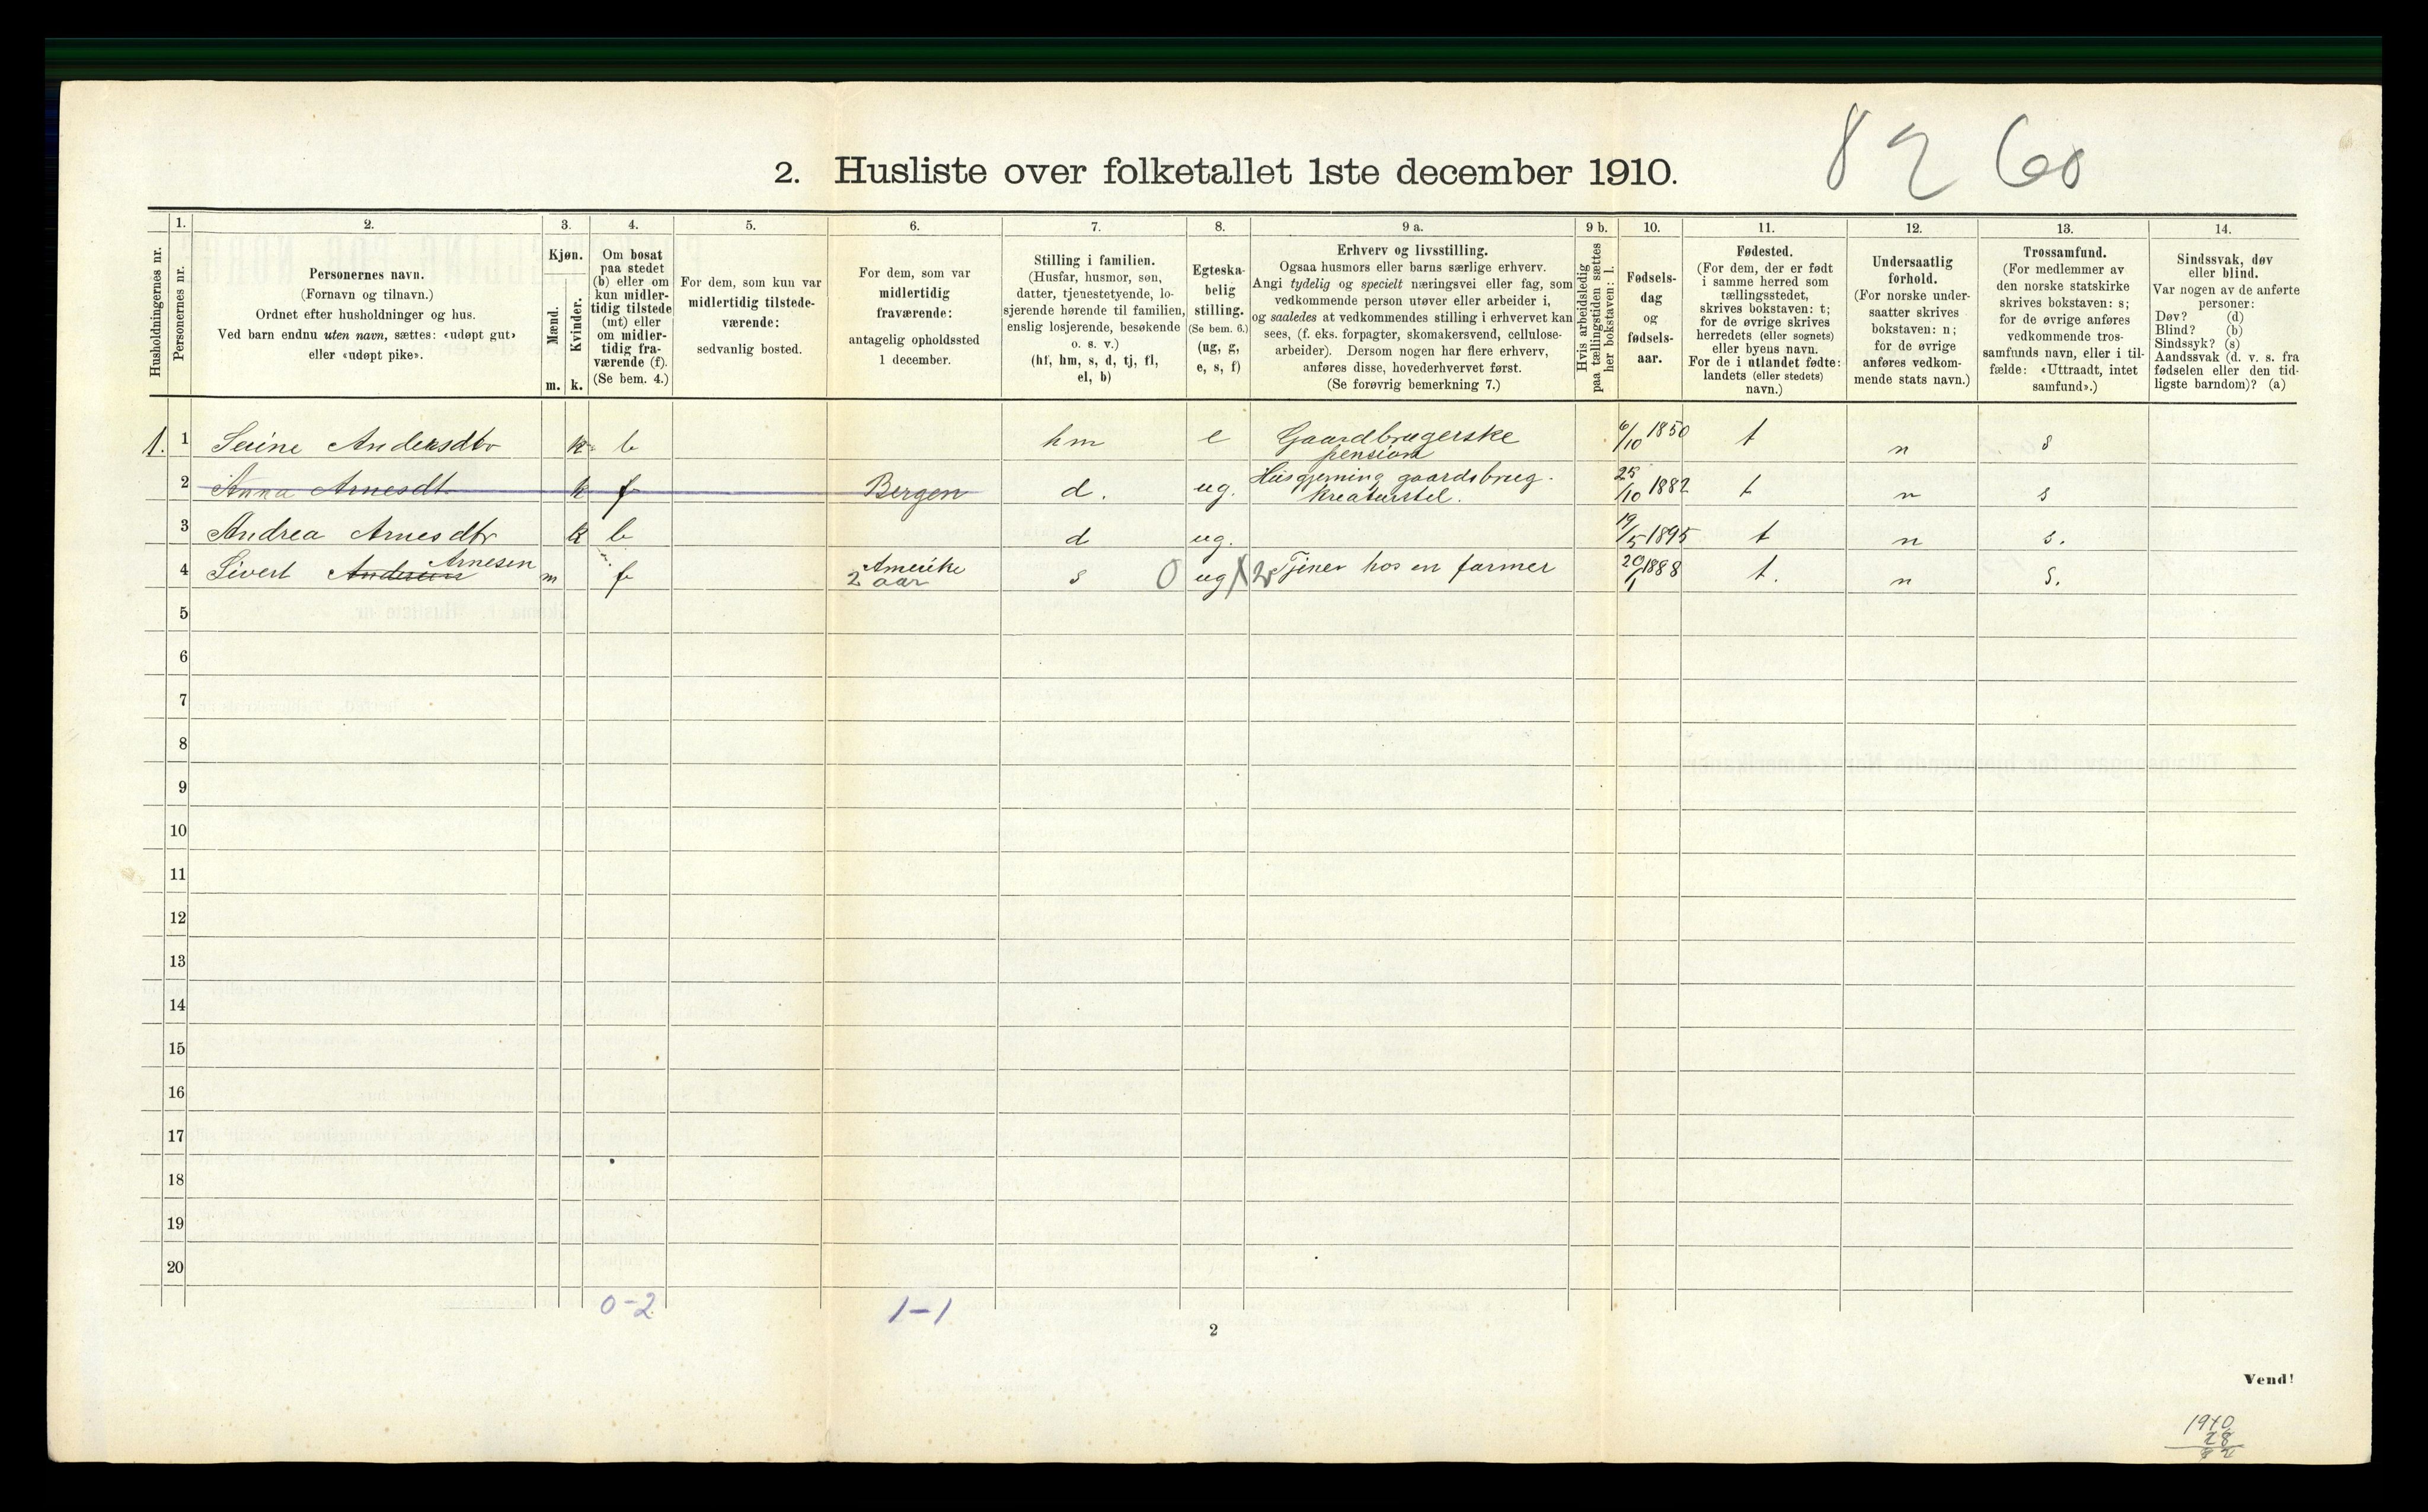 82 60
2. Husliste over folketallet 1ste december 1910.
Husholdningernes nr.
1.
Personernes nr.
2.
Personernes navn.
(Fornavn og tilnavn.)
Ordnet efter husholdninger og hus.
Ved barn endnu uten navn, sættes: «udøpt gut»
eller «udøpt pike».
3.
Kjøn.
Mænd.
Kvinder.
m. k.
4.
Om bosat
paa stedet
(b) eller om
kun midler-
tidig tilstede
(mt) eller
om midler-
tidig fra-
værende (f).
(Se bem. 4.)
5.
For dem, som kun var
midlertidig tilstede-
værende:
sedvanlig bosted.
6.
For dem, som var
midlertidig
fraværende:
antagelig opholdssted
1 december.
7.
Stilling i familien.
(Husfar, husmor, søn,
datter, tjenestetyende, lo-
sjerende hørende til familien,
enslig losjerende, besøkende
o. s. v.)
(hf, hm, s, d, tj, fl,
el, b)
8.
Egteska-
belig
stilling.
(Se bem. 6.)
(ug, g,
e, s, f)
9 a.
Erhverv og livsstilling.
Ogsaa husmors eller barns særlige erhverv.
Angi tydelig og specielt næringsvei eller fag, som
vedkommende person utøver eller arbeider i,
og saaledes at vedkommendes stilling i erhvervet kan
sees, (f. eks. forpagter, skomakersvend, cellulose-
arbeider). Dersom nogen har flere erhverv,
anføres disse, hovederhvervet først.
(Se forøvrig bemerkning 7.)
9 b.
Hvis arbeidsledig
paa tællingstiden sættes
her bokstaven: l.
10.
Fødsels-
dag
og
fødsels-
aar.
11.
Fødested.
(For dem, der er født
i samme herred som
tællingsstedet,
skrives bokstaven: t;
for de øvrige skrives
herredets (eller sognets)
eller byens navn.
For de i utlandet fødte:
landets (eller stedets)
navn.)
12.
Undersaatlig
forhold.
(For norske under-
saatter skrives
bokstaven: n;
for de øvrige
anføres vedkom-
mende stats navn.)
13.
Trossamfund.
(For medlemmer av
den norske statskirke
skrives bokstaven: s;
for de øvrige anføres
vedkommende tros-
samfunds navn, eller i til-
fælde: «Uttraadt, intet
samfund».)
14.
Sindssvak, døv
eller blind.
Var nogen av de anførte
personer:
Døv? (d)
Blind? (b)
Sindssyk? (s)
Aandssvak (d. v. s. fra
fødselen eller den tid-
ligste barndom)? (a)
1. 1 Serine Andersdtr k b hm e Gaardbrugerske pension 6/10 1850 t n s
2 Anna Arnesdt. k f Bergen d. ug. Husgjerning gaardsbrug. kreaturstel. 25/10 1882 t n s
3 Andrea Arnesdtr k b d ug. 19/5 1895 t n s.
4 Sivert Andersen Arnesen m f Amerike 2 aar s 0 ug X 2 Tjener hos en farmer 20/1 1888 t. n s.
5
6
7
8
9
10
11
12
13
14
15
16
17
18
19
20
0-2 1-1
2
Vend!